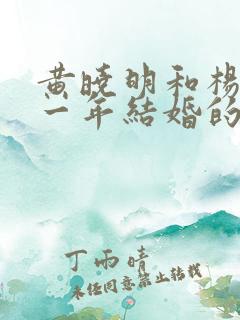 黄晓明和杨
一年结婚的
丁雨晴
未经同意禁止转载